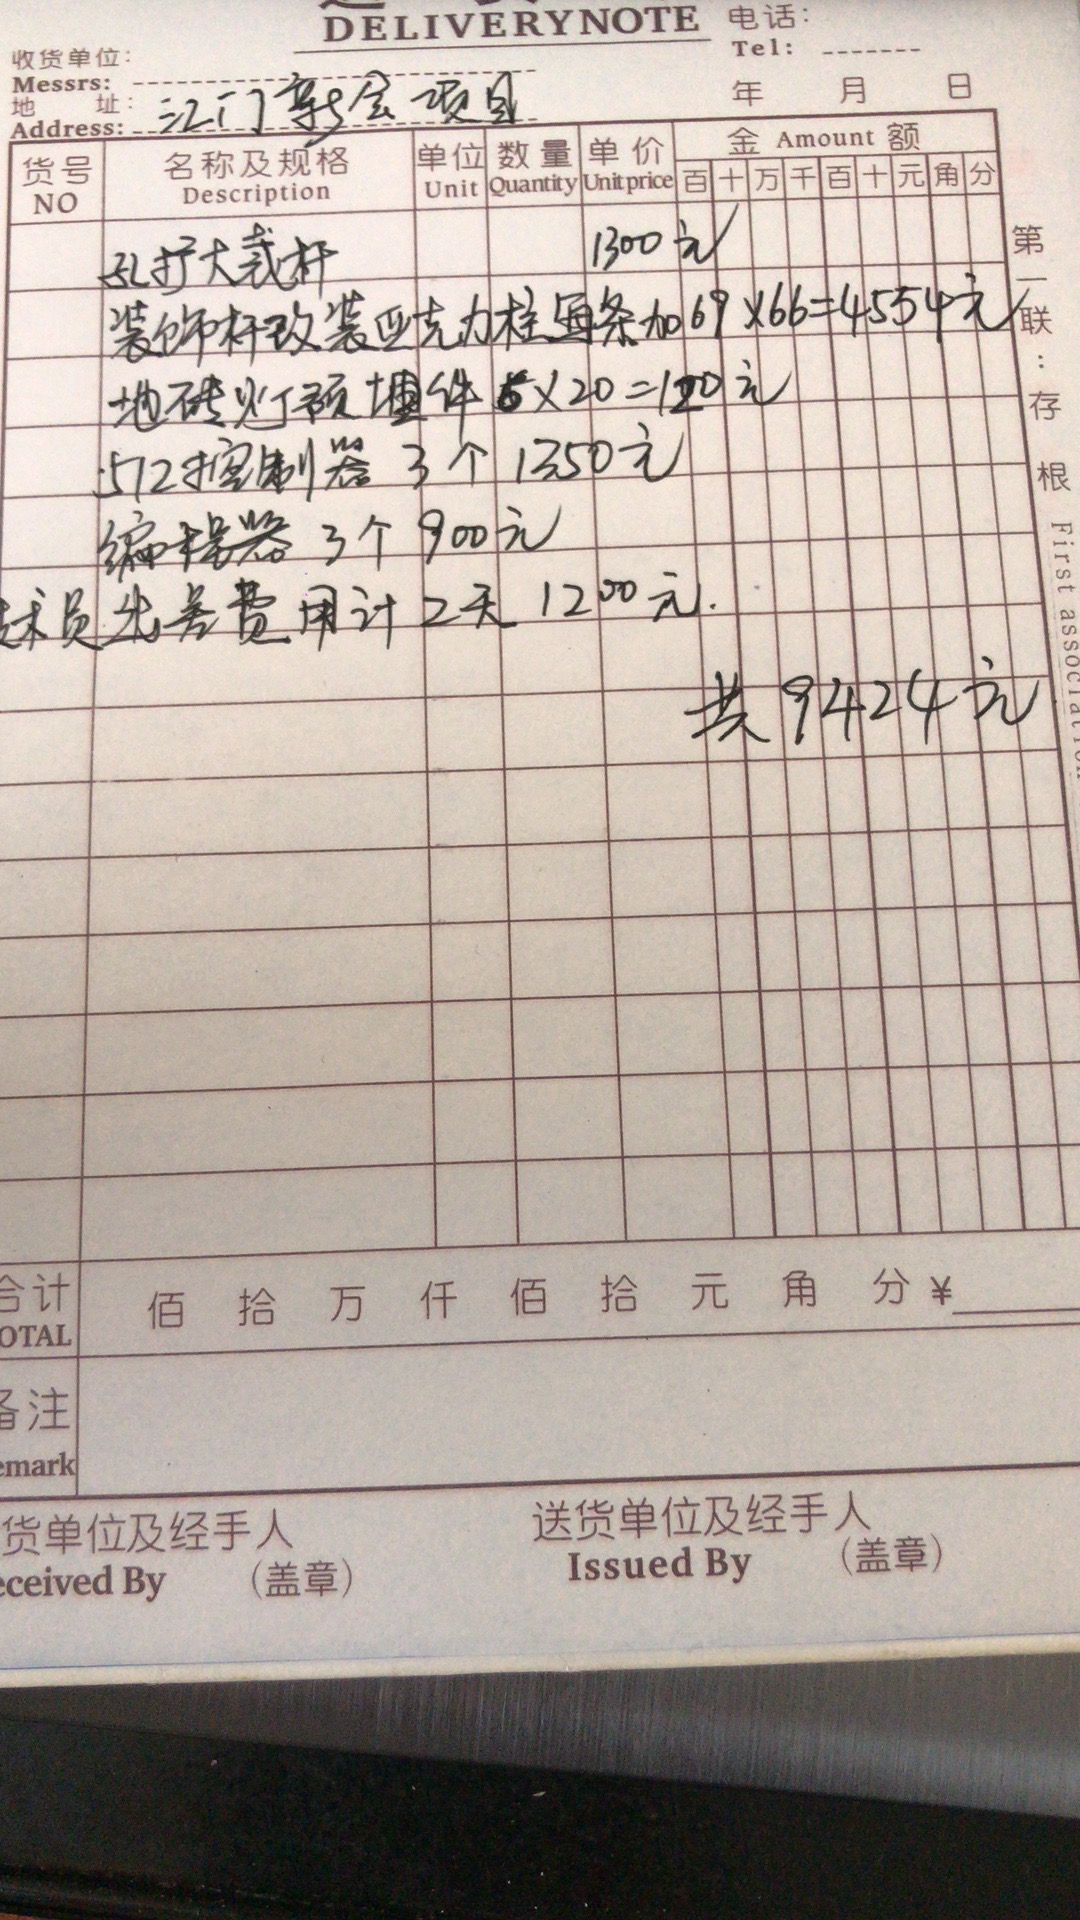 DELIVERYNOTE
电话:
Tel:
收货单位:
Messrs:
地 址:
Address: 江门新会项目
年 月 日
货号 名称及规格 单位 数量 单价 金 Amount 额
NO Description Unit Quantity Unitprice 百 十 万 千 百 十 元 角 分
孔扩大裁杆 1300元
装饰杆改装亚克力柱每条加69×66=4554元
地砖灯预埋件 6×20=120元
512控制器 3个 1350元
编程器 3个 900元
术员出差费用计2天 1200元.
共9424元
第一联:存根 First association
合计 佰 拾 万 仟 佰 拾 元 角 分 ¥
OTAL
备注
emark
货单位及经手人 送货单位及经手人
eceived By (盖章) Issued By (盖章)